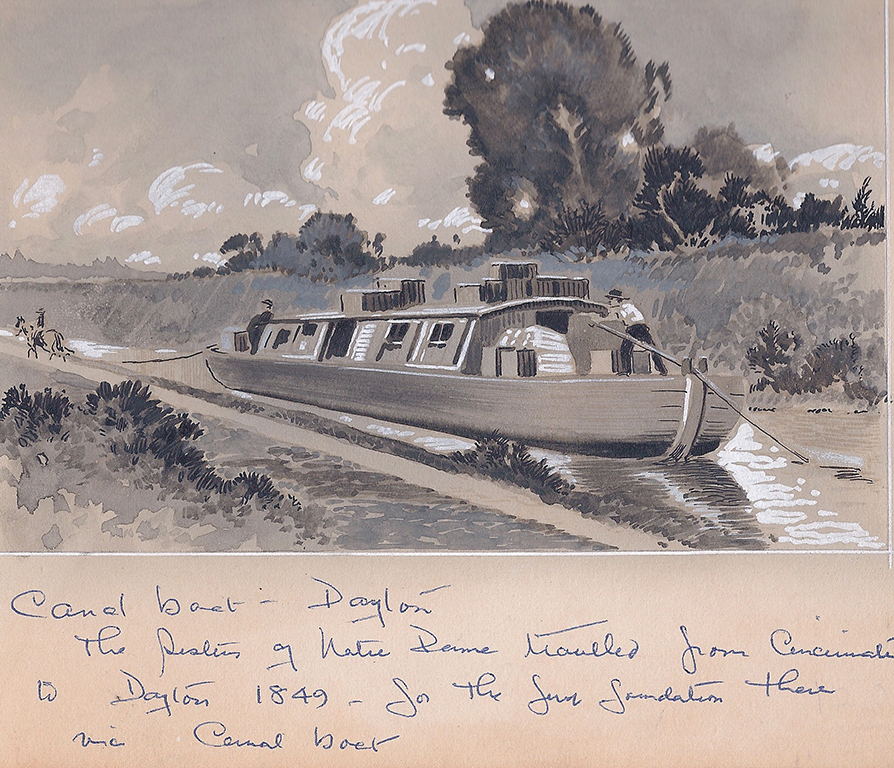 Canal boat - Dayton
The Sisters of Notre Dame travelled from Cincinnati
to Dayton 1849 - for the first foundation there
via Canal boat